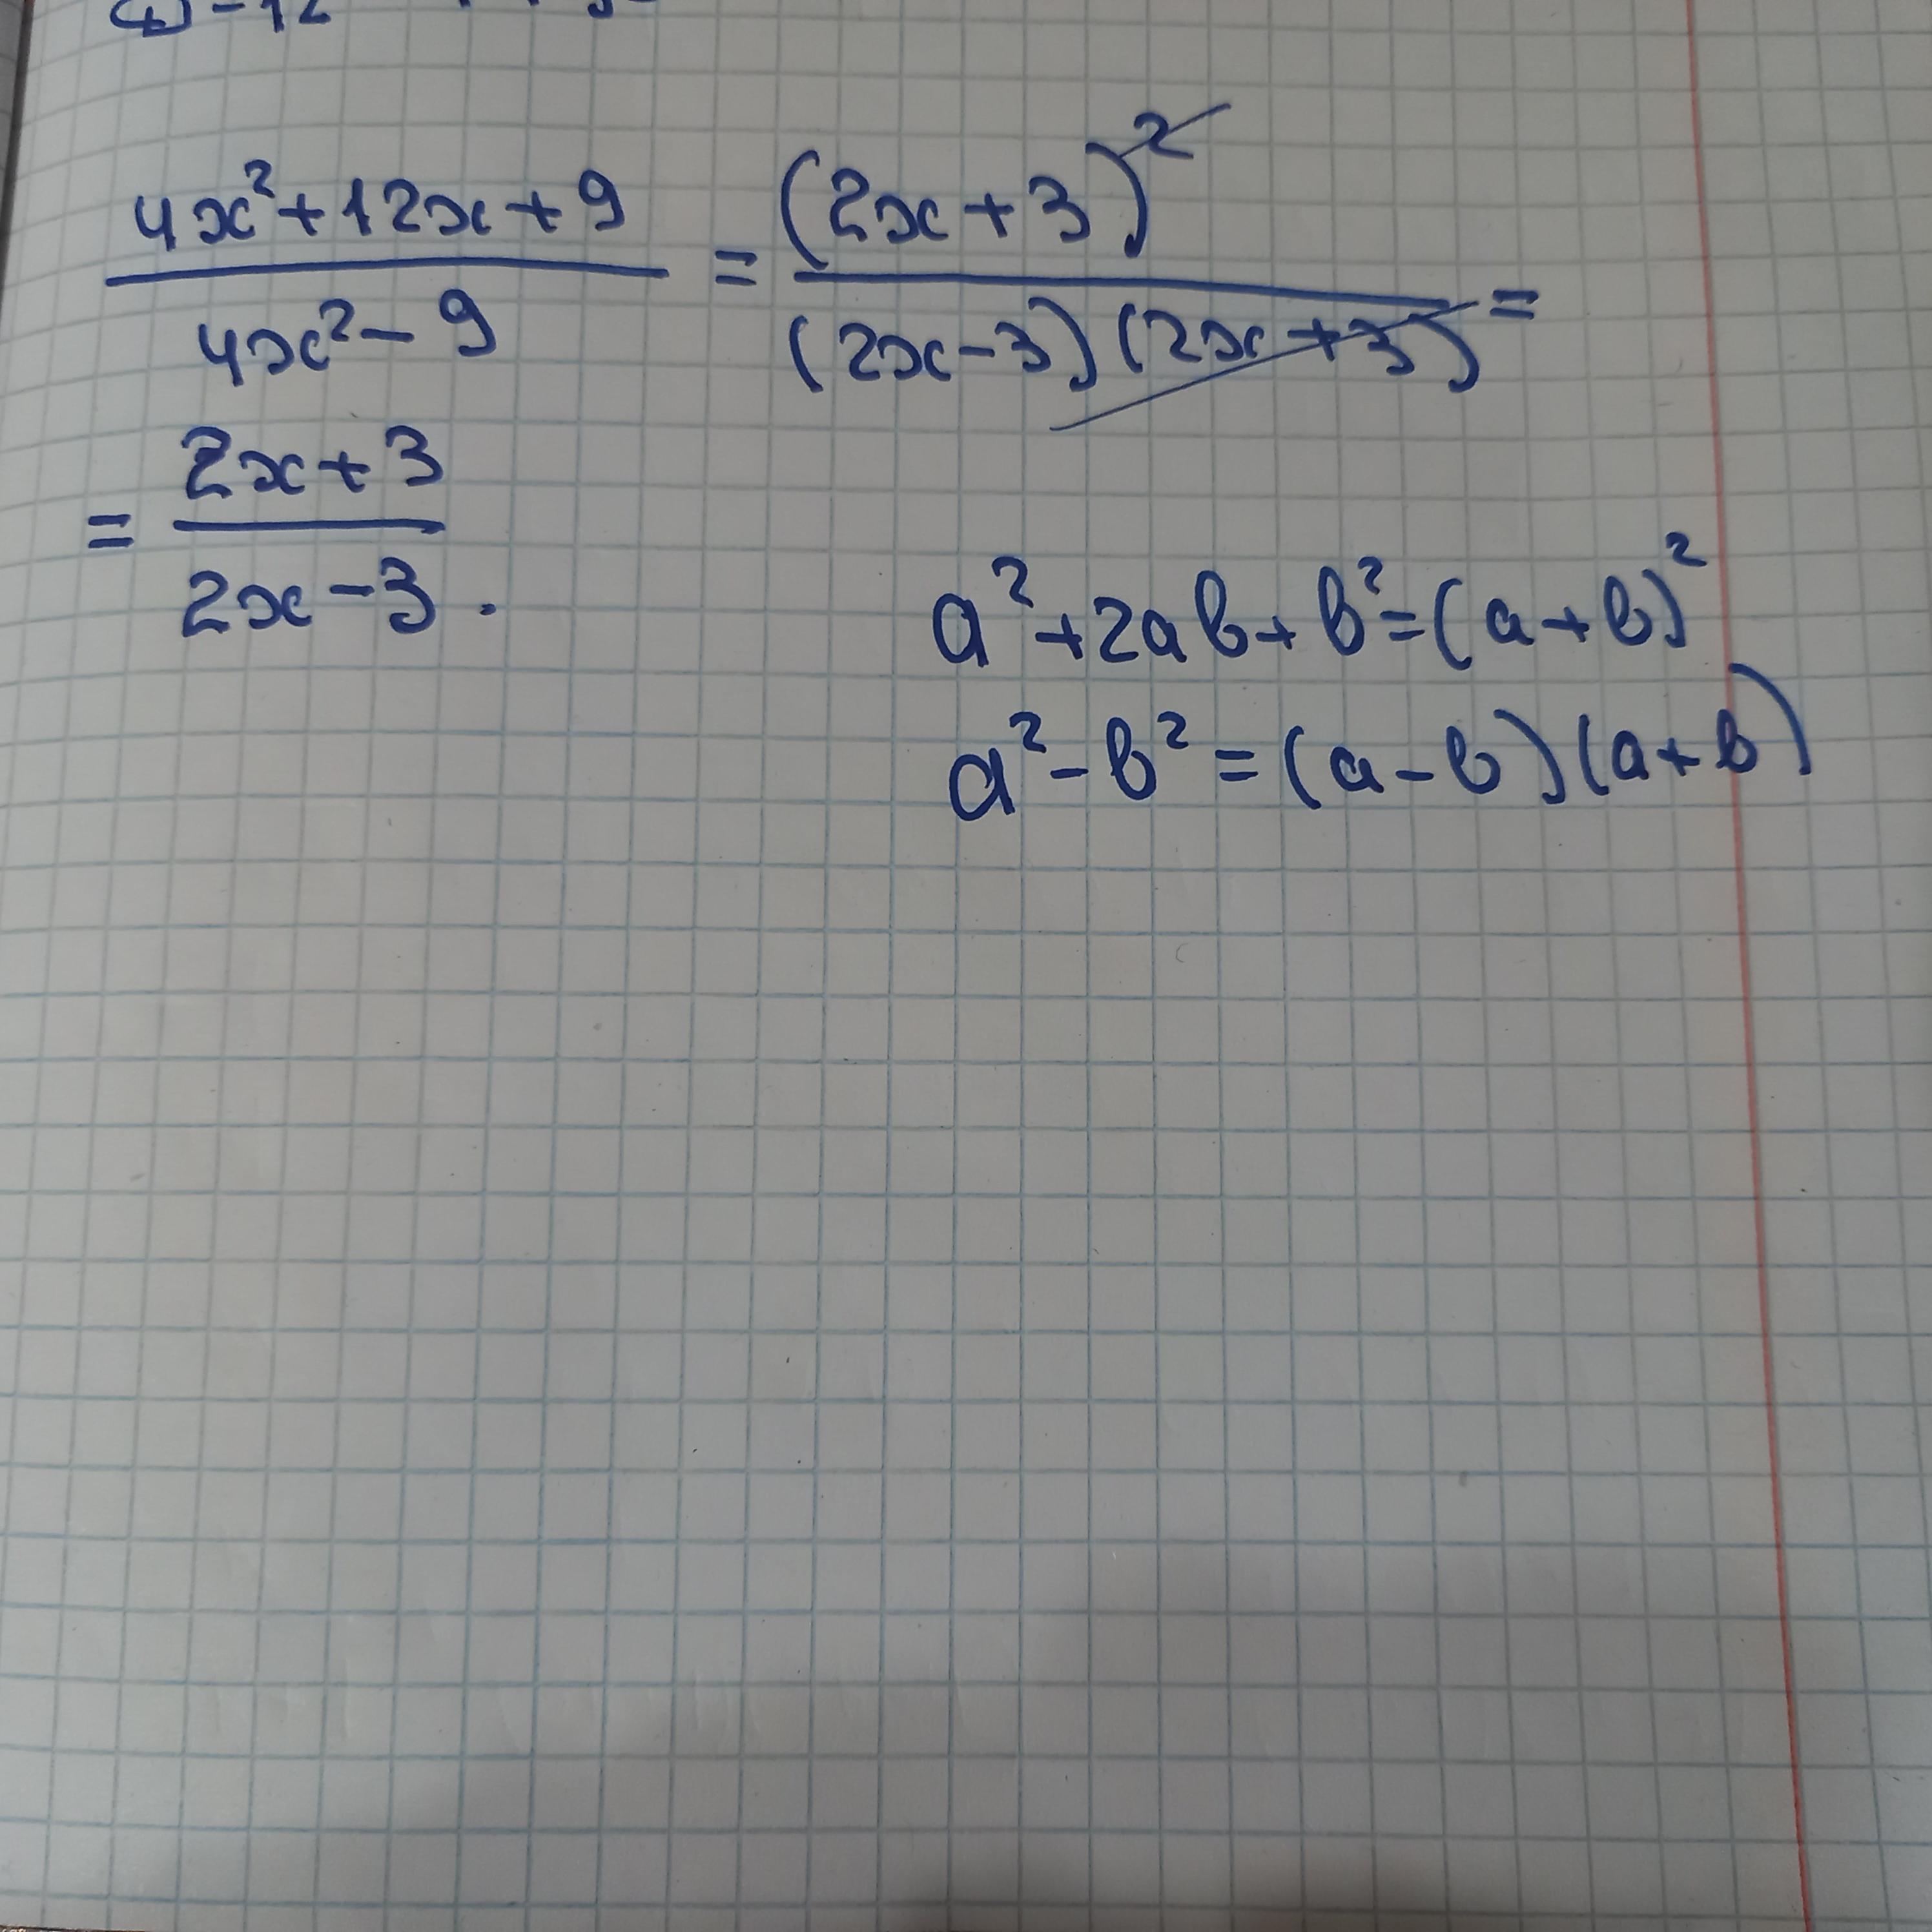 4x²+12x+9 / 4x²-9 = (2x+3)² / (2x-3)(2x+3) =
= 2x+3 / 2x-3 .
a²+2ab+b²=(a+b)²
a²-b²=(a-b)(a+b)